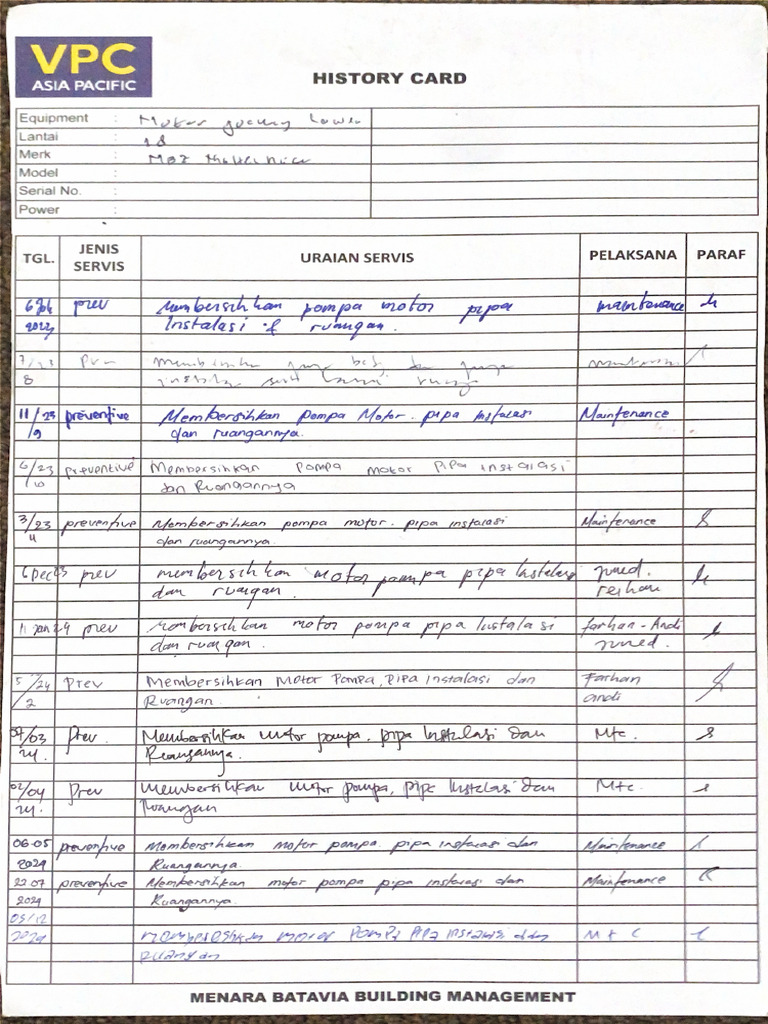 VPC
ASIA PACIFIC
HISTORY CARD
Equipment : Motor
Lantai : 18
Merk :
Model :
Serial No. :
Power :
TGL. JENIS SERVIS URAIAN SERVIS PELAKSANA PARAF
prev Membersihkan pompa motor pipa maintenance
2023 Instalasi & ruangan.
7/23
8
11/23 preventive Membersihkan Pompa Motor. pipa instalasi Maintenance
/9 dan ruangannya.
6/23 preventive Membersihkan Pompa Motor Pipa instalasi
10 dan Ruangannya
3/23 preventive Membersihkan pompa motor. pipa instalasi Maintenance
11 dan ruangannya.
6 Dec 23 prev membersihkan motor pompa pipa Instalasi juned.
dan ruangan. reihan
11 jan 24 prev Membersihkan motor pompa pipa Instalasi farhan - Andi
dan ruangan. juned.
5/24 Prev Membersihkan Motor Pompa, Pipa instalasi dan Farhan
/2 Ruangan. andi
04/03 Prev. Membersihkan motor pompa. pipa Instalasi dan Mtc.
24. Ruangannya.
02/04 Prev Membersihkan motor pompa, pipa Instalasi dan Mtc.
24. Ruangan
06-05 preventive Membersihkan motor pompa. pipa instalasi dan Maintenance
2024 Ruangannya.
22 07 preventive Membersihkan motor pompa pipa instalasi dan Maintenance
2024 Ruangannya.
03/12
2024 Membersihkan motor Pompa Pipa Instalasi dan MTC
ruangan
MENARA BATAVIA BUILDING MANAGEMENT